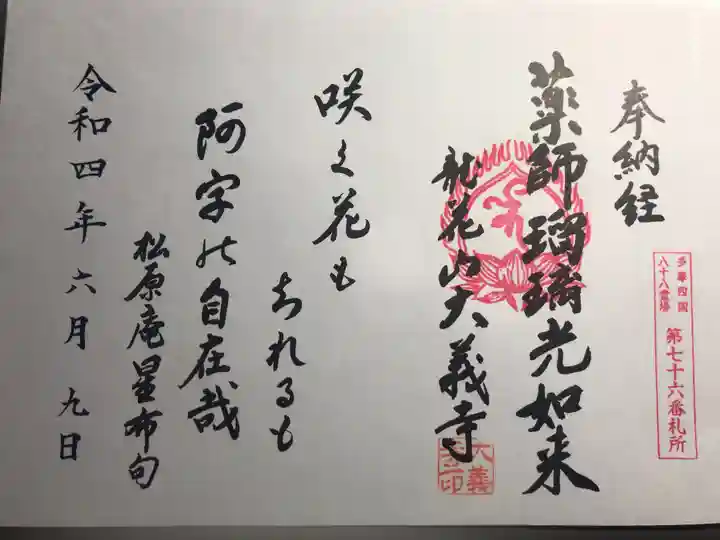 奉納経
多摩四国
八十八霊場
第七十六番札所
薬師瑠璃光如来
龍花山大義寺
大義
寺印
咲く花も
ちれるも
阿字の自在哉
松原庵星布句
令和四年六月九日